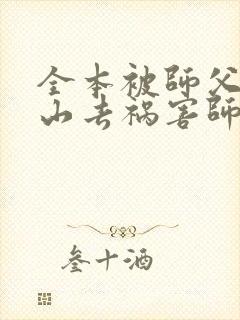 全本被師父
山去禍害師
叁十酒